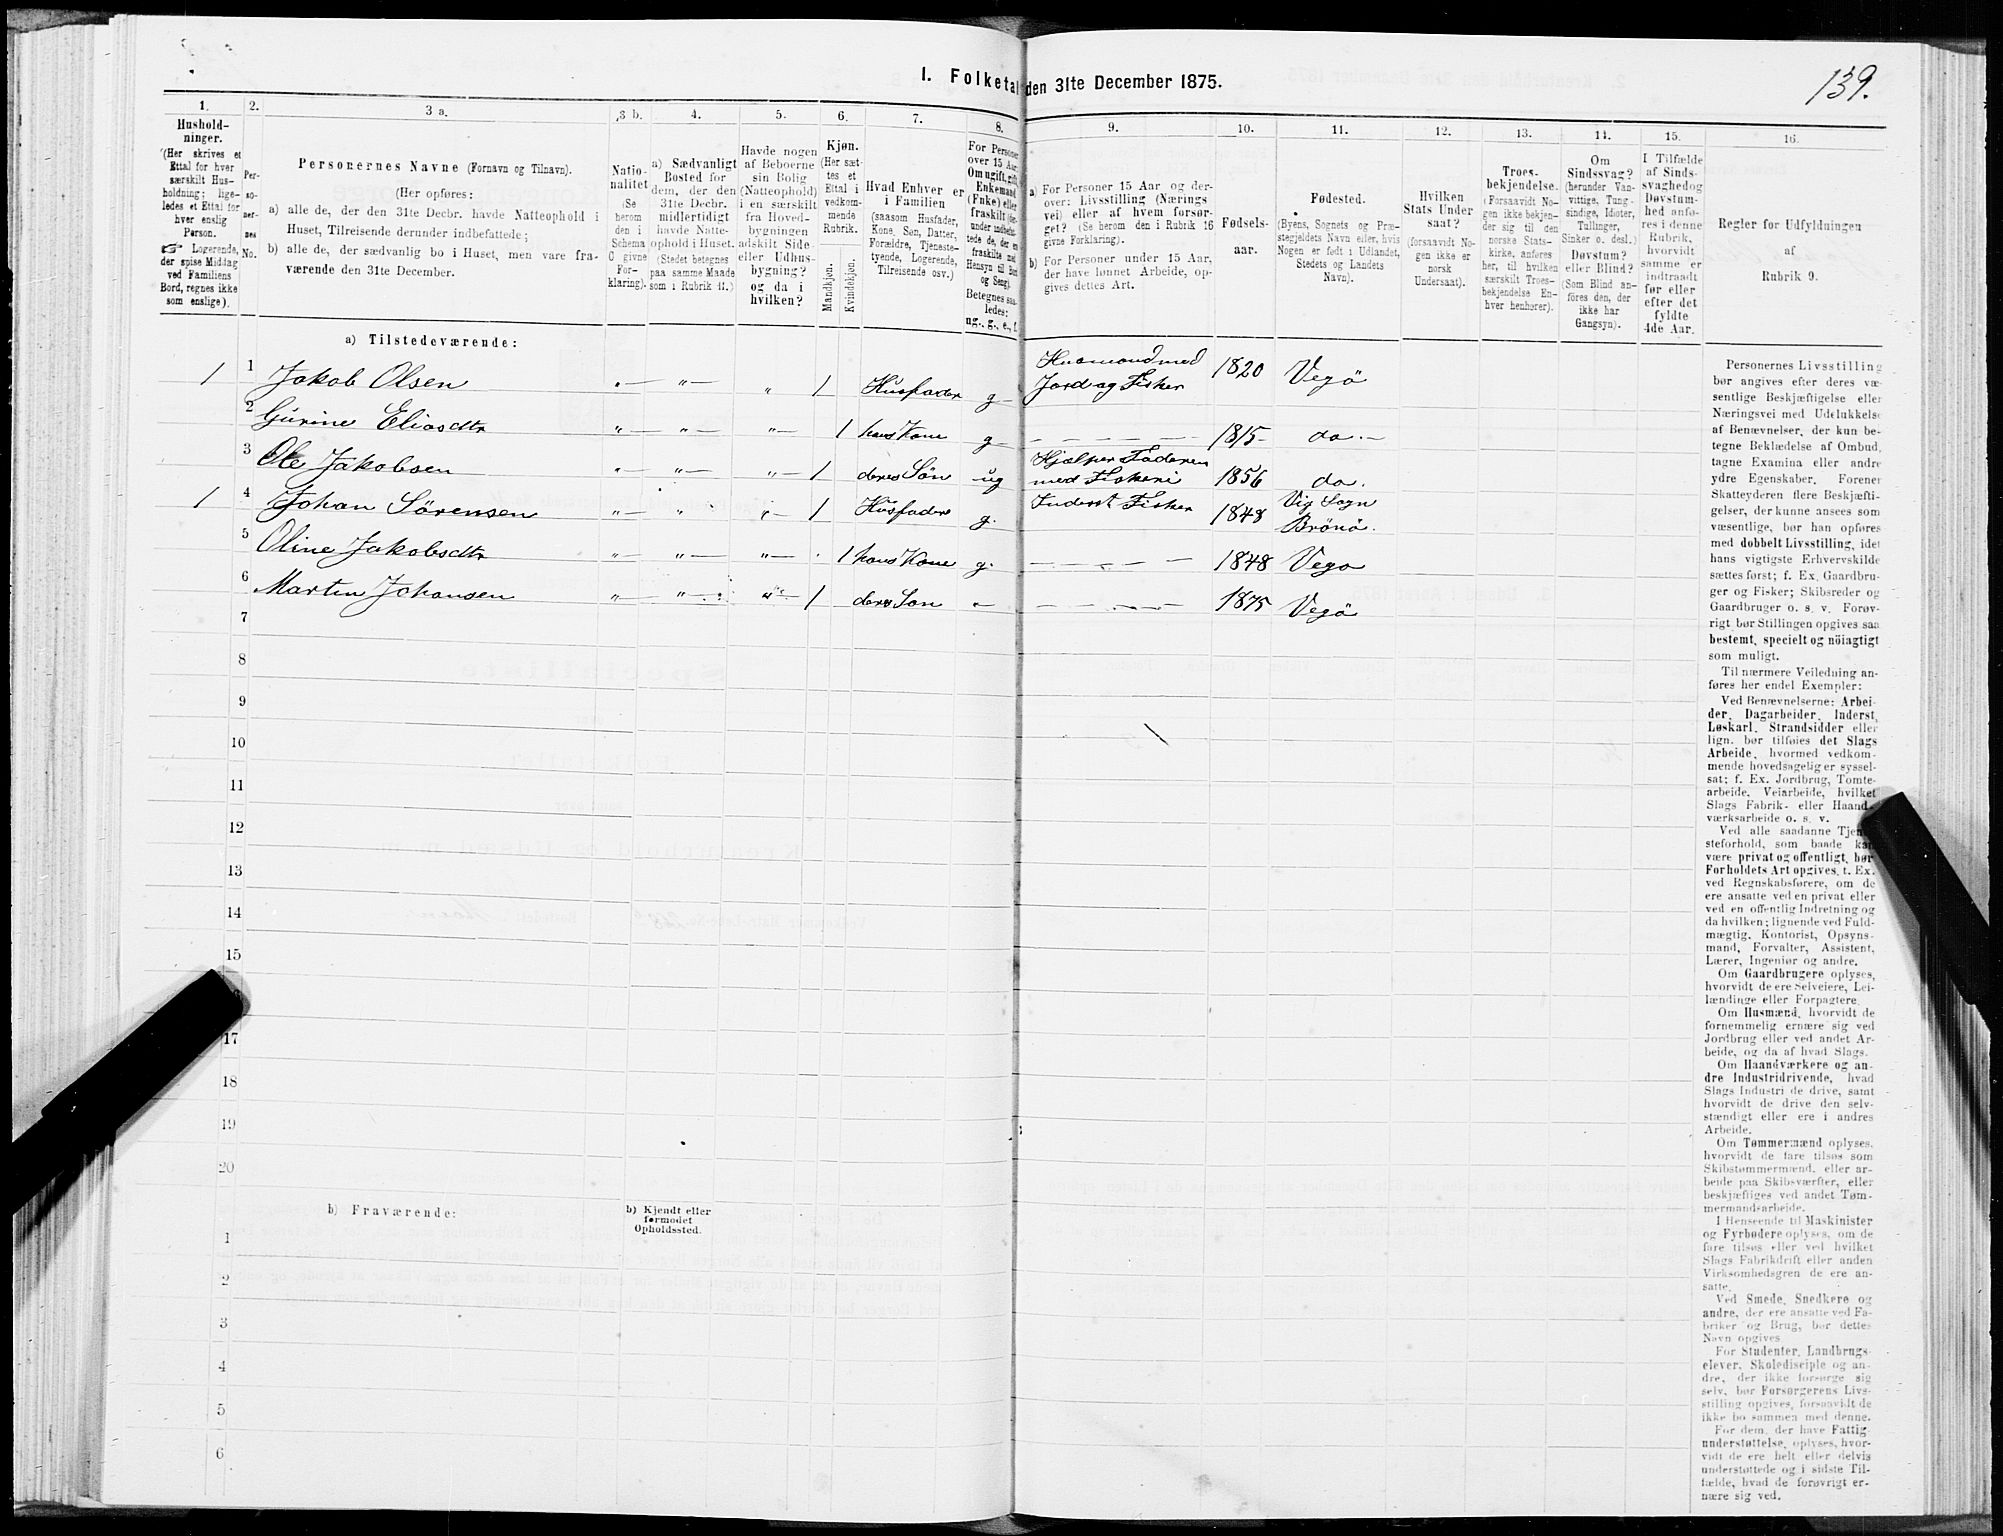 I. Folketal den 31te December 1875.
139.
1. 2. 3 a. 3 b. 4. 5. 6. 7. 8. 9. 10. 11. 12. 13. 14. 15. 16.
Hushold-
ninger.
(Her skrives et
Ettal for hver
særskilt Hus-
holdning; lige-
ledes et Ettal for
hver enslig
Person.
☛ Logerende,
der spise Middag
ved Familiens
Bord, regnes ikke
som enslige).
Per-
so-
ner-
nes
No.
Personernes Navne (Fornavn og Tilnavn).
(Her opføres:
a) alle de, der den 31te Decbr. havde Natteophold i
Huset, Tilreisende derunder indbefattede;
b) alle de, der sædvanlig bo i Huset, men vare fra-
værende den 31te December.
Natio-
nalitet
(Se
herom
den i
Schema
C givne
For-
klaring).
a) Sædvanligt
Bosted for
dem, der den
31te Decbr.
midlertidigt
havde Natte-
ophold i Huset.
(Stedet betegnes
paa samme Maade
som i Rubrik 11.)
Havde nogen
af Beboerne
sin Bolig
(Natteophold)
i en særskilt
fra Hoved-
bygningen
adskilt Side
eller Udhus-
bygning?
og da i
hvilken?
Kjøn.
(Her sæt-
tes et
Ettal i
vedkom-
mende
Rubrik.
Mandkjøn.
Kvindekjøn.
Hvad Enhver er
i Familien
(saasom Husfader,
Kone, Søn, Datter,
Forældre, Tjeneste-
tyende, Logerende,
Tilreisende osv.)
For Personer
over 15 Aar:
Om ugift, gift,
Enkemand
(Enke) eller
fraskilt (der-
under indbefat-
tede de, der er
fraskilte med
Hensyn til Bord
og Seng).
Betegnes saa-
ledes:
ug., g., e., f.
a) For Personer 15 Aar og der-
over: Livsstilling (Nærings
vei) eller af hvem forsør-
get? (Se herom den i Rubrik 16
givne Forklaring).
b) For Personer under 15 Aar,
der have lønnet Arbeide, op-
gives dettes Art.
Fødsels-
aar.
Fødested.
(Byens, Sognets og Præ-
stegjeldets Navn eller, hvis
Nogen er født i Udlandet,
Stedets og Landets
Navn).
Hvilken
Stats Under
saat?
(forsaavidt No-
gen ikke er
norsk
Undersaat).
Troes-
bekjendelse.
(Forsaavidt No-
gen ikke bekjen-
der sig til den
norske Stats-
kirke, anføres
her, til hvilken
særskilt Troes-
bekjendelse En-
hver henhører).
Om
Sindssvag?
(herunder Van-
vittige, Tung-
sindige, Idioter,
Tullinger,
Sinker o. desl.)
Døvstum?
eller Blind?
(Som Blind an-
føres den, der
ikke har
Gangsyn).
I Tilfælde
af Sinds-
svaghed og
Døvstum-
hed anfø-
res i denne
Rubrik,
hvorvidt
samme er
indtraadt
før eller
efter det
fyldte
4de Aar.
Regler for Udfyldningen
af
Rubrik 9.
a) Tilstedeværende:
1 1 Jakob Olsen „— „— „ 1 Husfader g— Husmand med Jord og Fisker 1820 Vegö
2 Gurine Eliasdtr „— „— „— 1 hans Kone g— — — — — — 1815— do.—
3 Ole Jakobsen „— „— „— 1 deres Sön ug Hjælper Faderen med Fiskeri 1856 do.
1 4 Johan Sörensen „— „ „— 1 Husfader g. Inderst Fisker 1848 Vig Sogn Brönö.
5 Oline Jakobsdtr „— „— „— 1 hans Kone g. — — — — 1848 Vega
6 Martin Johansen „— „— „— 1 deres Son — — — — — 1875 Vegö
7
8
9
10
11
12
13
14
15
17
18
19
20
b) Fraværende:
b) Kjendt eller
formodet
Opholdssted.
1
2
3
4
5
6
Personernes Livsstilling
bør angives efter deres væ-
sentlige Beskjæftigelse eller
Næringsvei med Udelukkelse
af Benævnelser, der kun be-
tegne Beklædelse af Ombud,
tagne Examina eller andre
ydre Egenskaber. Forener
Skatteyderen flere Beskjæfti-
gelser, der kunne ansees som
væsentlige, bør han opføres
med dobbelt Livsstilling, idet
hans vigtigste Erhvervskilde
sættes først; f. Ex. Gaardbru-
ger og Fisker; Skibsreder og
Gaardbruger o. s. v. Forøv-
rigt bør Stillingen opgives saa
bestemt, specielt og nöiagtigt
som muligt.
Til nærmere Veiledning an-
føres her endel Exempler:
Ved Benævnelserne: Arbei-
der, Dagarbeider, Inderst,
Løskarl, Strandsidder eller
lign. bør tilføies det Slags
Arbeide, hvormed vedkom-
mende hovedsagelig er syssel-
sat; f. Ex. Jordbrug, Tomte-
arbeide, Veiarbeide, hvilket
Slags Fabrik- eller Haand-
værksarbeide o. s. v.
Ved alle saadanne Tjene-
steforhold, som baade kan
være privat og offentligt, bør
Forholdets Art opgives, f. Ex.
ved Regnskabsførere, om de
ere ansatte ved en privat eller
ved en offentlig Indretning og
da hvilken; lignende ved Fuld-
mægtig, Kontorist, Opsyns-
mand, Forvalter, Assistent,
Lærer, Ingeniør og andre.
Om Gaardbrugere oplyses,
hvorvidt de ere Selveiere, Lei-
lændinge eller Forpagtere.
Om Husmænd, hvorvidt de
fornemmelig ernære sig ved
Jordbrug eller ved andet Ar-
beide, og da af hvad Slags.
Om Haandværkere og an-
dre Industridrivende, hvad
Slags Industri de drive, samt
hvorvidt de drive den selv-
stændigt eller ere i andres
Arbeide.
Om Tømmermænd oplyses,
hvorvidt de fare tilsøs som
Skibstømmermænd, eller ar-
beide paa Skibsværfter, eller
beskjæftiges ved andet Tøm-
mermandsarbeide.
I Henseende til Maskinister
og Fyrbødere oplyses, om de
fare tilsøs eller ved hvilket
Slags Fabrikdrift eller anden
Virksomhedsgren de ere an-
satte.
Ved Smede, Snedkere og
andre, der ere ansatte ved Fa-
briker og Brug, bør dettes
Navn opgives
For Studenter, Landbrugs-
elever, Skoledisciple og an-
dre, der ikke forsørge sig
selv, bør Forsørgerens Livs-
stilling opgives, forsaavidt de
ikke bo sammen med denne.
For dem, der have Fattig-
understøttelse, oplyses, hvor-
vidt de ere helt eller delvis
understøttede og i sidste Til-
fælde, hvad de forøvrigt er-
nære sig ved.